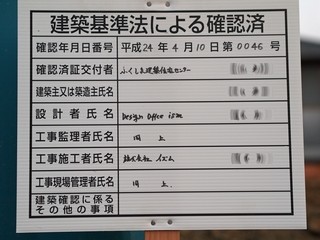 建築基準法による確認済
確認年月日番号 平成24年4月10日第0046号
確認済証交付者 ふくしま建築住宅センター
建築主又は築造主氏名
設計者氏名 Design Office ism
工事監理者氏名 同上
工事施工者氏名 株式会社イズム
工事現場管理者氏名 同上
建築確認に係る
その他の事項